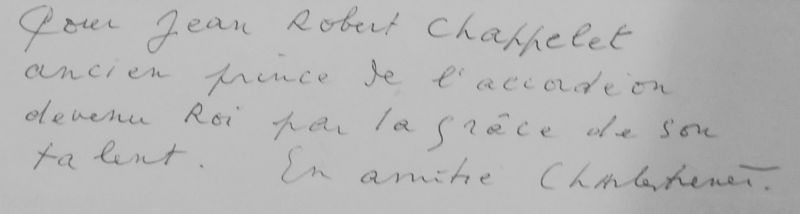 Pour Jean Robert Chappelet
ancien prince de l'accordéon
devenu Roi par la grâce de son
talent. En amitié Charles Trenet.